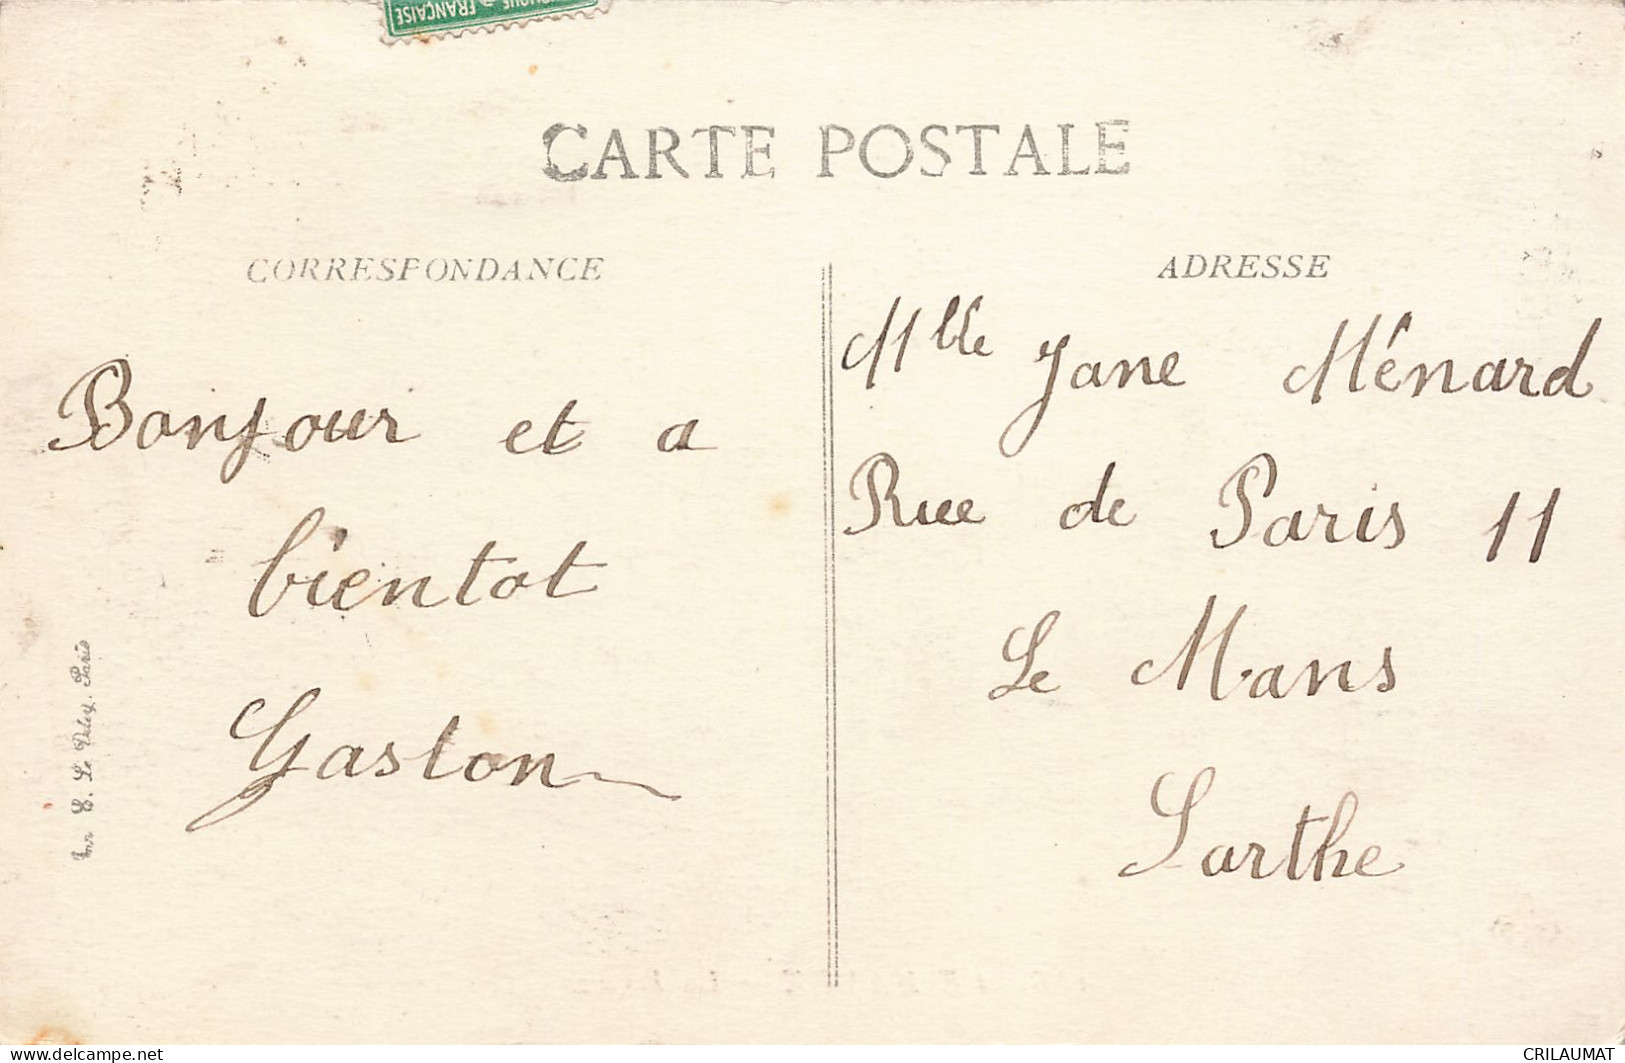 RÉPUBLIQUE FRANÇAISE
CARTE POSTALE
CORRESPONDANCE
Bonjour et a
bientot
Gaston
ADRESSE
Mlle Jane Ménard
Rue de Paris 11
Le Mans
Sarthe
Imp. E. Le Deley, Paris
www.delcampe.net
CRILAUMAT